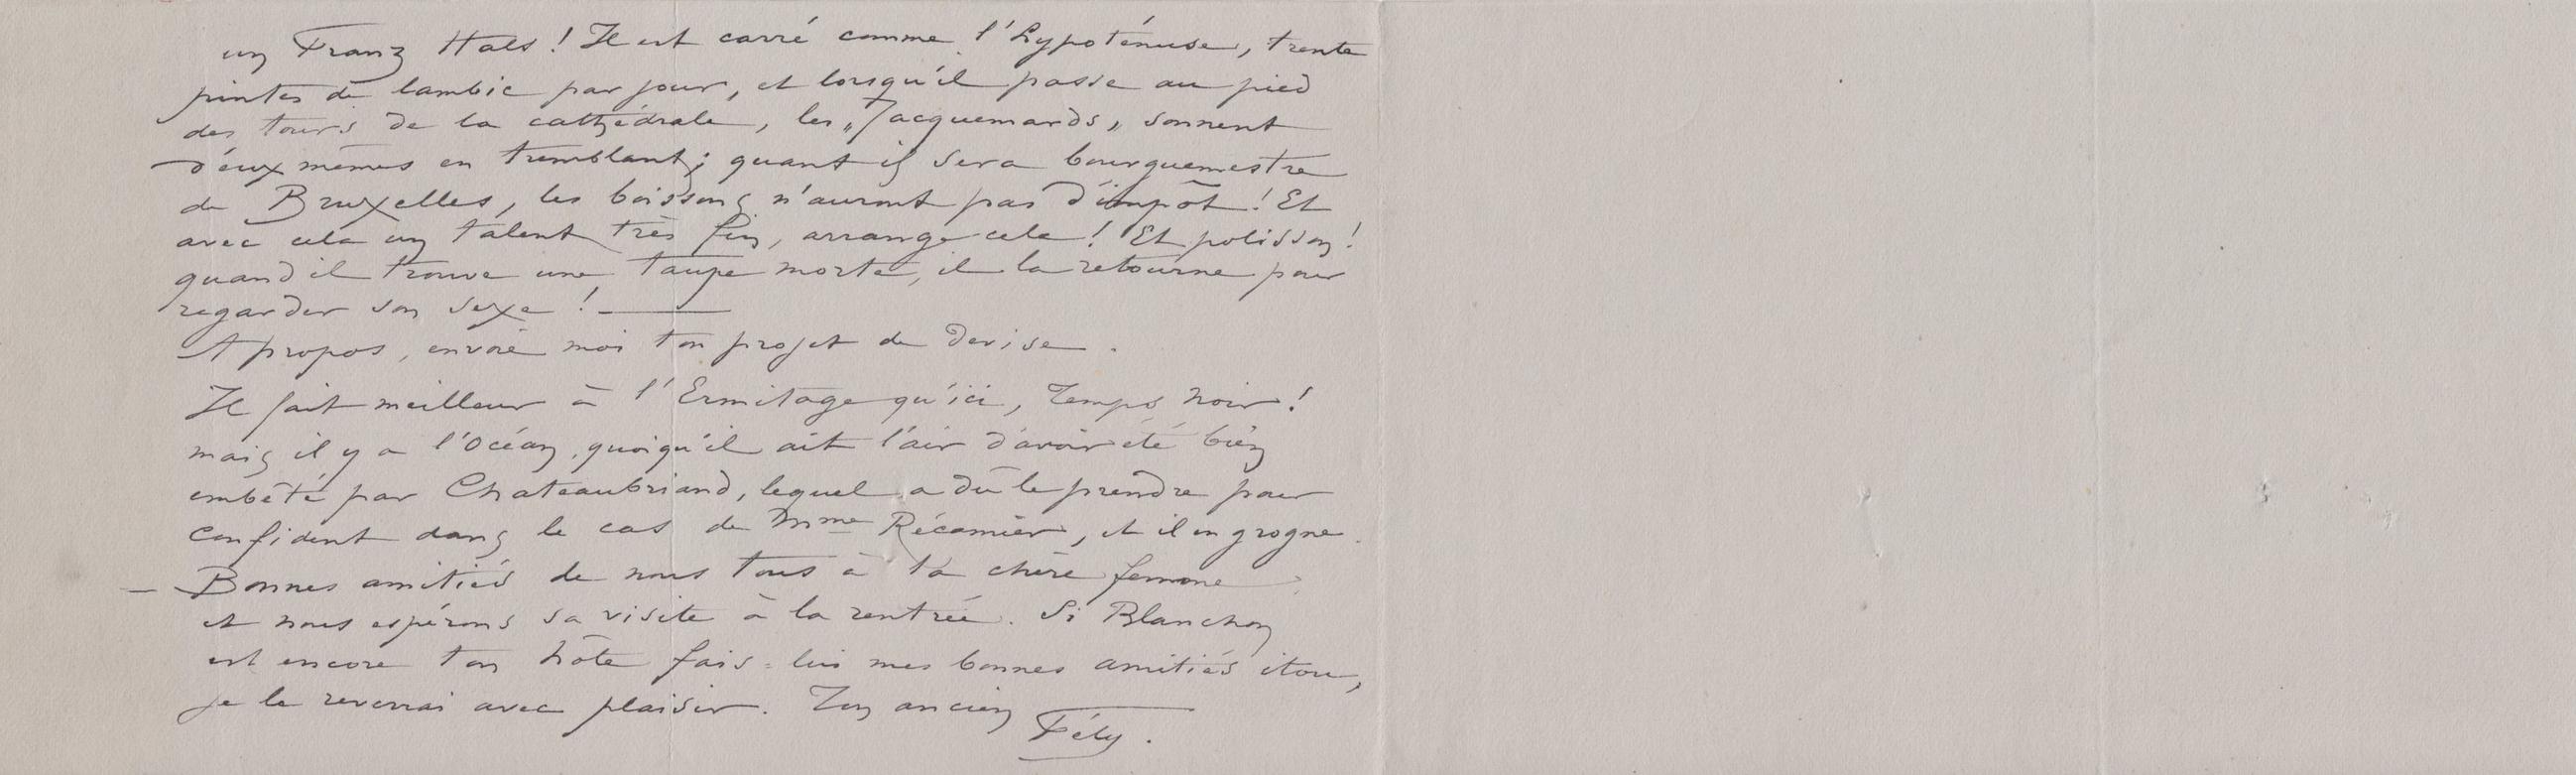 un Franz Hals ! Il est carré comme l'hypoténuse, trente
pintes de lambic par jour, et lorsqu'il passe au pied
des tours de la cathédrale, les „Jacquemards„ sonnent
d'eux mêmes en tremblant ; quant il sera bourguemestre
de Bruxelles, les boissons n'auront pas d'impôt ! Et
avec cela un talent très fin, arrange cela ! Et polisson !
quand il trouve une taupe morte, il la retourne pour
regarder son sexe ! —
A propos, envoie moi ton projet de devise .
Il fait meilleur à l'Ermitage qu'ici, Temps noir !
mais il y a l'Océan, quoiqu'il ait l'air d'avoir été bien
embêté par Chateaubriand, lequel a dû le prendre pour
confident dans le cas de Mme Récamier, et il en grogne.
— Bonnes amitiés de nous tous à ta chère femme
et nous espérons sa visite à la rentrée. Si Blanchon
est encore ton hôte fais=lui mes bonnes amitiés itou,
je le reverrai avec plaisir. Ton ancien
Fély .